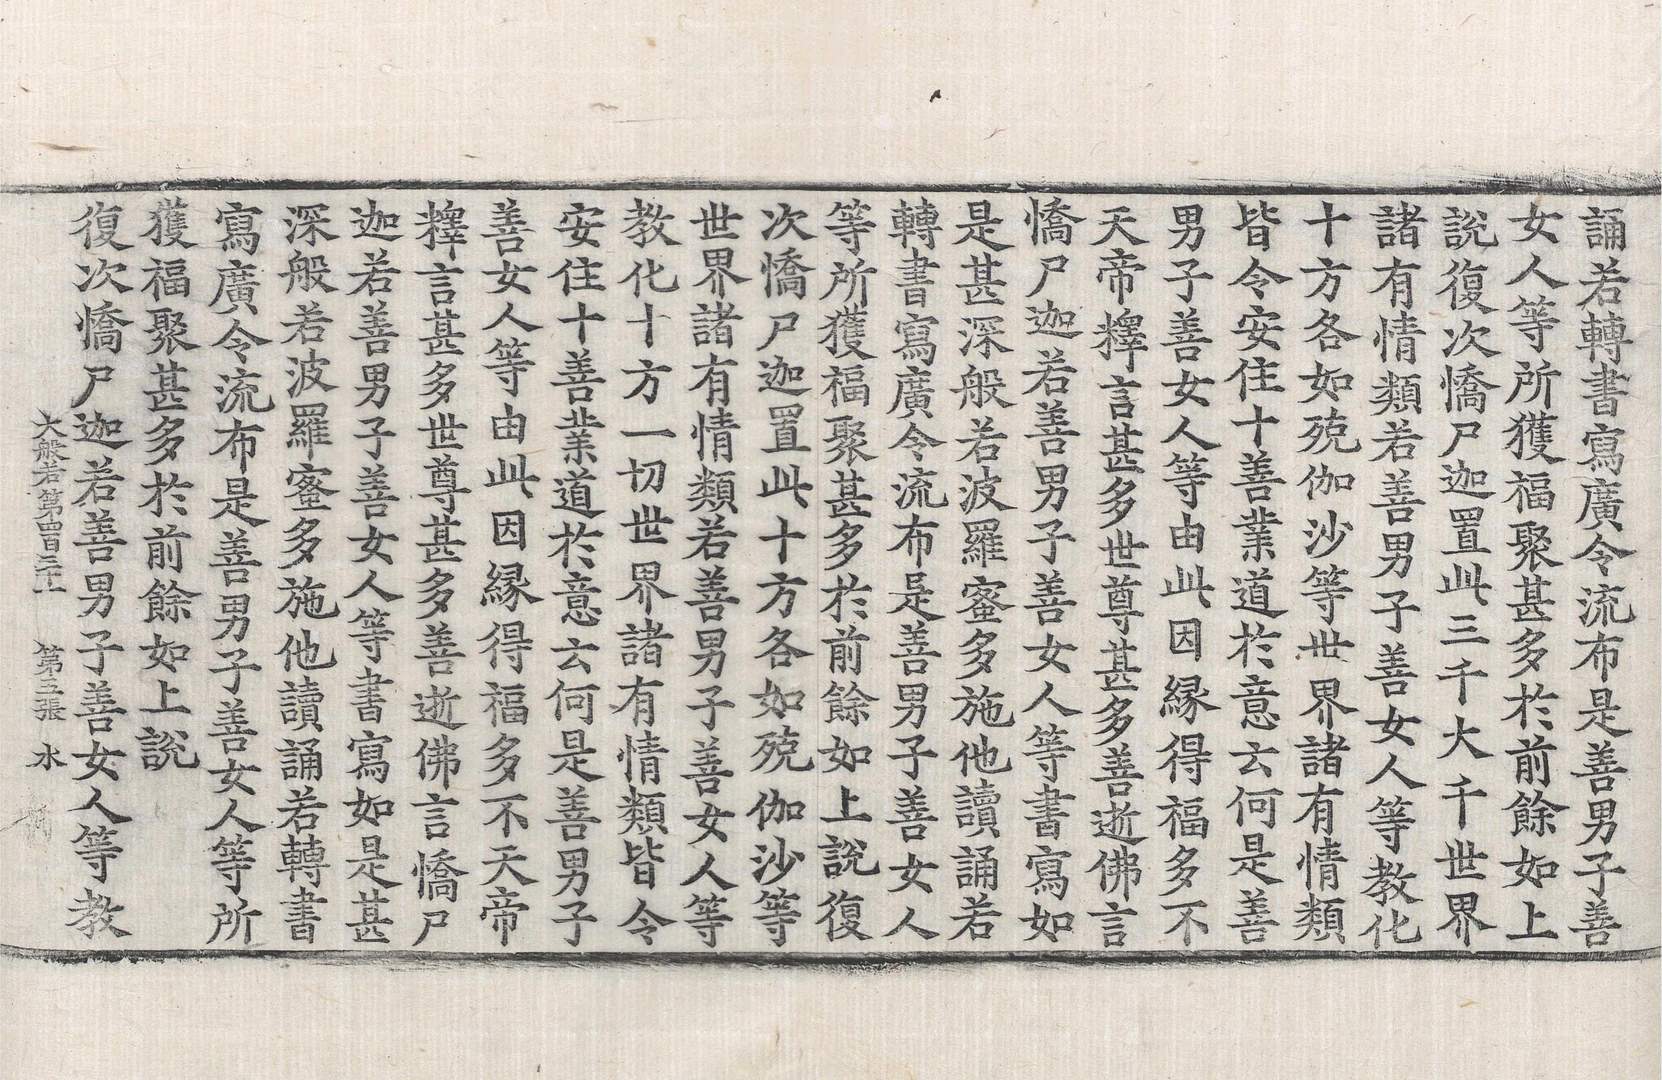 誦若轉書寫廣令流布是善男子善
女人等所獲福聚甚多於前餘如上
說復次憍尸迦置此三千大千世界
諸有情類若善男子善女人等教化
十方各如殑伽沙等世界諸有情類
皆令安住十善業道於意云何是善
男子善女人等由此因緣得福多不
天帝釋言甚多世尊甚多善逝佛言
憍尸迦若善男子善女人等書寫如
是甚深般若波羅蜜多施他讀誦若
轉書寫廣令流布是善男子善女人
等所獲福聚甚多於前餘如上說復
次憍尸迦置此十方各如殑伽沙等
世界諸有情類若善男子善女人等
教化十方一切世界諸有情類皆令
安住十善業道於意云何是善男子
善女人等由此因緣得福多不天帝
釋言甚多世尊甚多善逝佛言憍尸
迦若善男子善女人等書寫如是甚
深般若波羅蜜多施他讀誦若轉書
寫廣令流布是善男子善女人等所
獲福聚甚多於前餘如上說
復次憍尸迦若善男子善女人等教
大般若第四百三十一 第五張 水